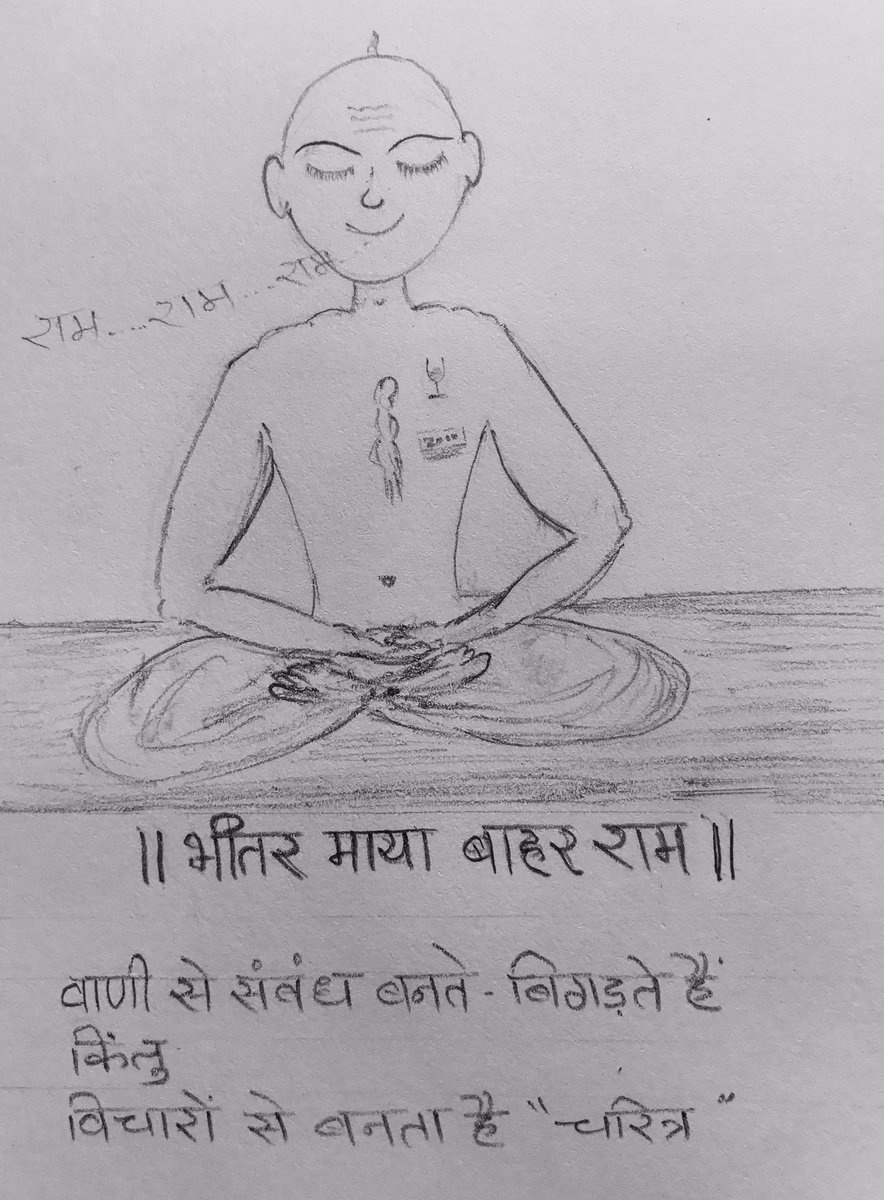 राम....राम....राम
2000
|| भीतर माया बाहर राम ||
वाणी से संबंध बनते - बिगड़ते हैं
किंतु
विचारों से बनता है "चरित्र"